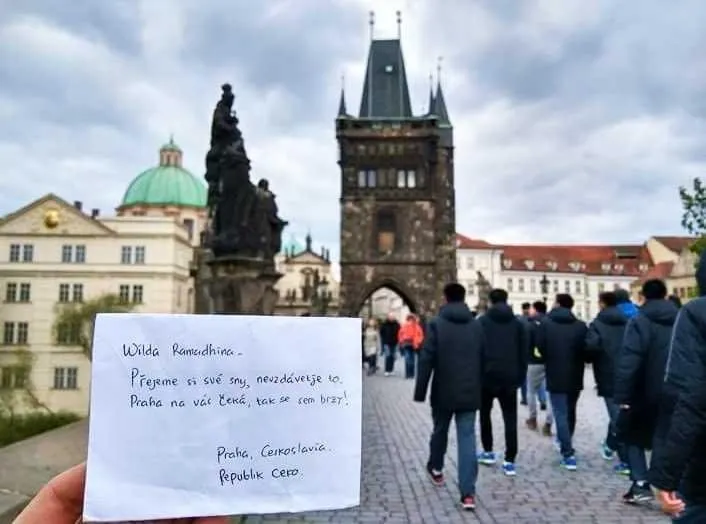 Wilda Ramadhina -
Přejeme si své sny, nevzdávetje to.
Praha na vás čeká, tak se sem brzy!
Praha, Ceskoslavia.
Republik Ceko.